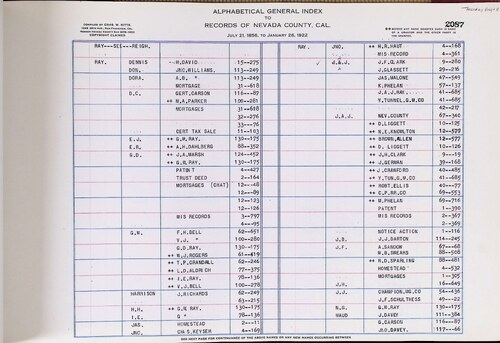 ALPHABETICAL GENERAL INDEX
TO
RECORDS OF NEVADA COUNTY, CAL.
JULY 21, 1856, TO JANUARY 26, 1922
COPYRIGHT CLAIMED
2087
RAY---SEE---REIGH.
RAY. DENNIS H.DAVID 15--275
DON. JNO.WILLIAMS. 113--249
DORA. A.B. " 113--249
MORTGAGE 31--618
D.C. GERT.CARSON 118--87
++ M.A.PARKER 100--281
MORTGAGES 31--618
32--276
33--76
CERT TAX SALE 11--103
E.J. ++ G.W.RAY. 130--175
E.R. ++ A.H.DAHLBERG 88--352
G.D. ++ J.A.MARSH 124--452
++ G.W.RAY. 130--175
PATENT 4--427
TRUST DEED 2--164
MORTGAGES (CHAT) 12---48
12---89
12--123
12--126
MIS RECORDS 3--797
4--95
G.W. F.H.BELL 62--651
V.J. " 100--280
G.D.RAY. 130--175
++ N.J.ROGERS 61--419
++ T.P.CRANDALL 44--246
++ L.D.ALDRICH 77--375
++ I.E.RAY. 78--136
++ V.J.BELL 100--278
HARRISON J.RICHARDS 62--249
63--215
H.H. ++ G.W.RAY 130--175
I.E. G " 78--136
JAS. HOMESTEAD 2---11
JNO. CHAS.KEYSER 4--169
RAY. JNO. ++ N.R.HAUT 4--168
MIS RECORD 4--361
J.A.J. J.F.CLARK 9--280
J.GLASSETT 29--216
JAS.MALONE 47--549
P.PHELAN 57--137
J.A.J.RAY. 41--685
Y.TUNNEL,G.M.CO 41--685
42--217
J.A.J. NEV.COUNTY 67--340
D.LIGGETT 10--125
++ N.E.KNOWLTON 12--577
++ BROWN,ALLEN 12--577
++ D.LIGGETT 10--126
++ J.H.CLARK 9---19
++ J.GERMAN 39--168
++ J.CRAWFORD 40--685
++ Y.TUN,G.M.CO 41--685
++ HOYT,ELLIS 40--77
++ C.P.RR.CO 69--553
++ M.PHELAN 69--716
PATENT 1--390
MIS RECORDS 2--367
2--369
NOTICE ACTION 1--116
J.B. J.J.BARTON 114--245
J.F. A.SANDOW 67--68
N.B.SPEARS 88--508
++ R.D.SPARLING 88--481
HOMESTEAD 4--532
MORTGAGE 1--305
J.H. 16--649
J.J. CHAMPION,MG.CO 54--436
J.F.SCHULTHESS 49---22
N.G. G.W.RAY. 130--175
MAUD J.DAVEY 111--384
G.CARSON 117--87
JNO.DAVEY. 117---66
SEE NEXT PAGE FOR CONTINUANCE OF THE ABOVE NAMES OR ANY NEW NAMES OCCURRING BETWEEN